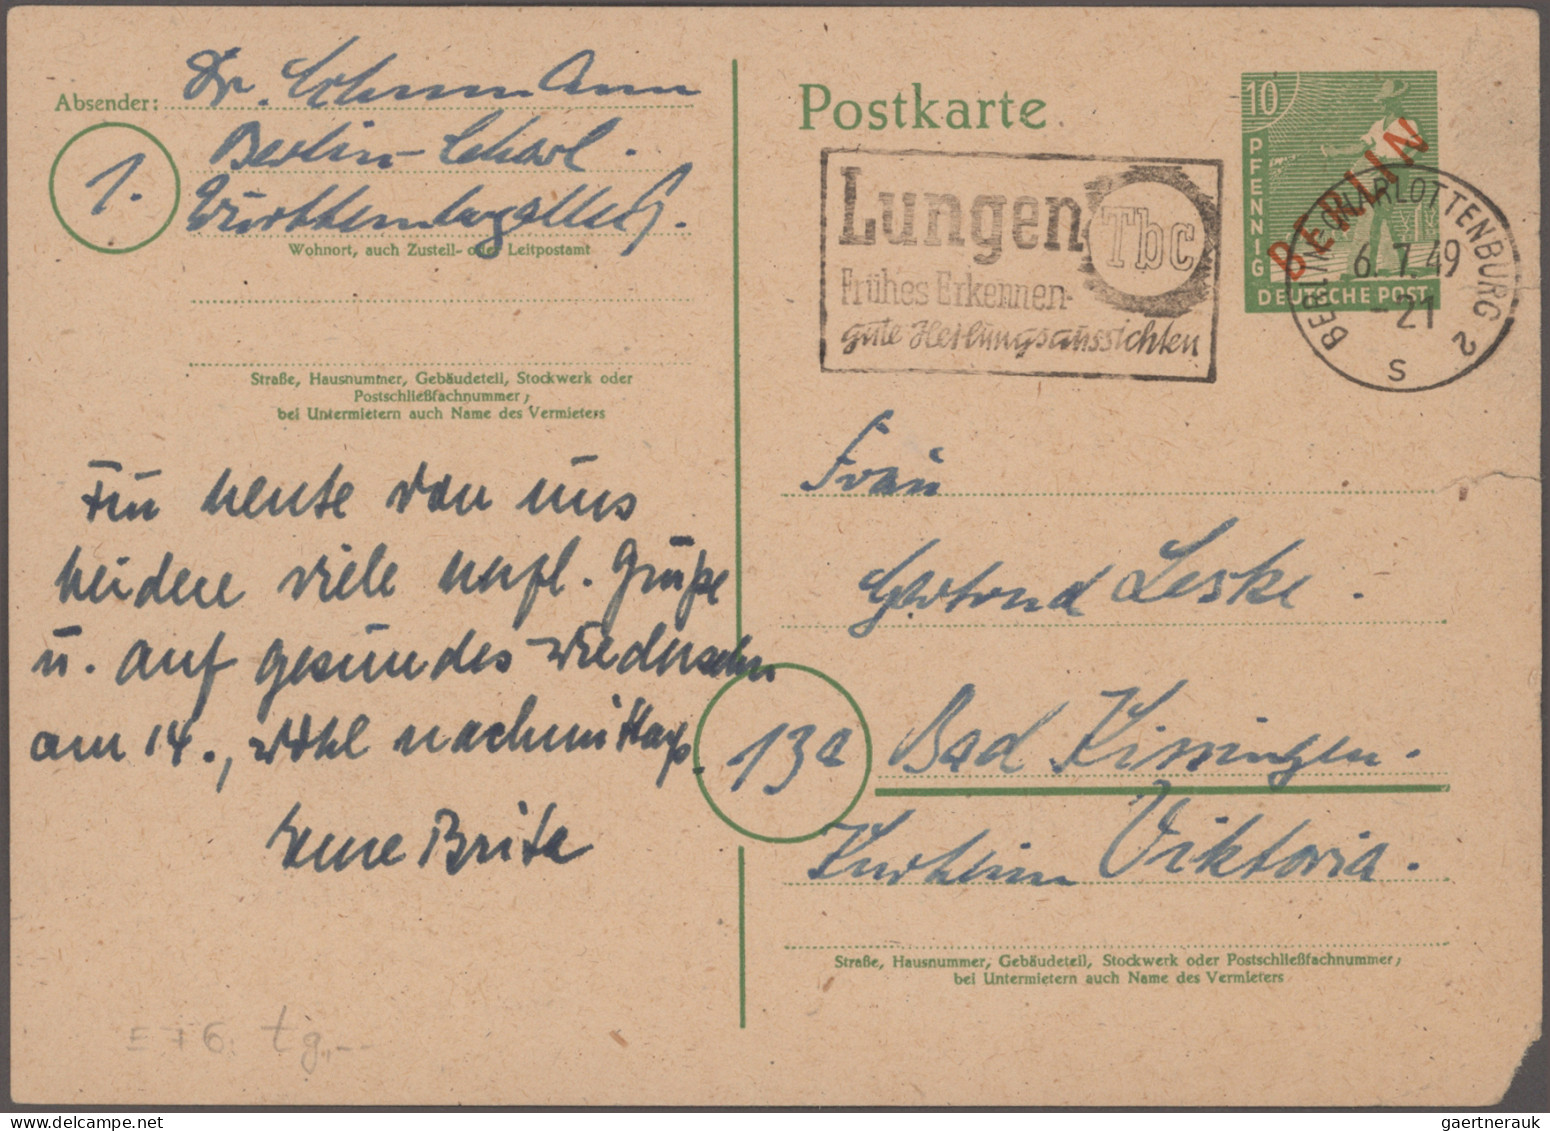 Absender: Dr. Schumann
1. Berlin-Charl.
Wohnort, auch Zustell- oder Leitpostamt
Straße, Hausnummer, Gebäudeteil, Stockwerk oder
Postschließfachnummer;
bei Untermietern auch Name des Vermieters
Für heute von uns
beiden viele herzl. Grüße
u. auf gesundes Wiedersehn
am 14., wohl nachmittags.
Brita
Postkarte
10
PFENNIG
BERLIN
DEUTSCHE POST
Lungen Tbc
Frühes Erkennen-
gute Heilungsaussichten
BERLIN-CHARLOTTENBURG 2
6.7.49
-21
s
Frau
Gertrud Leske.
13a Bad Kissingen.
Kurheim Viktoria.
Straße, Hausnummer, Gebäudeteil, Stockwerk oder Postschließfachnummer;
bei Untermietern auch Name des Vermieters
gaertnerauk